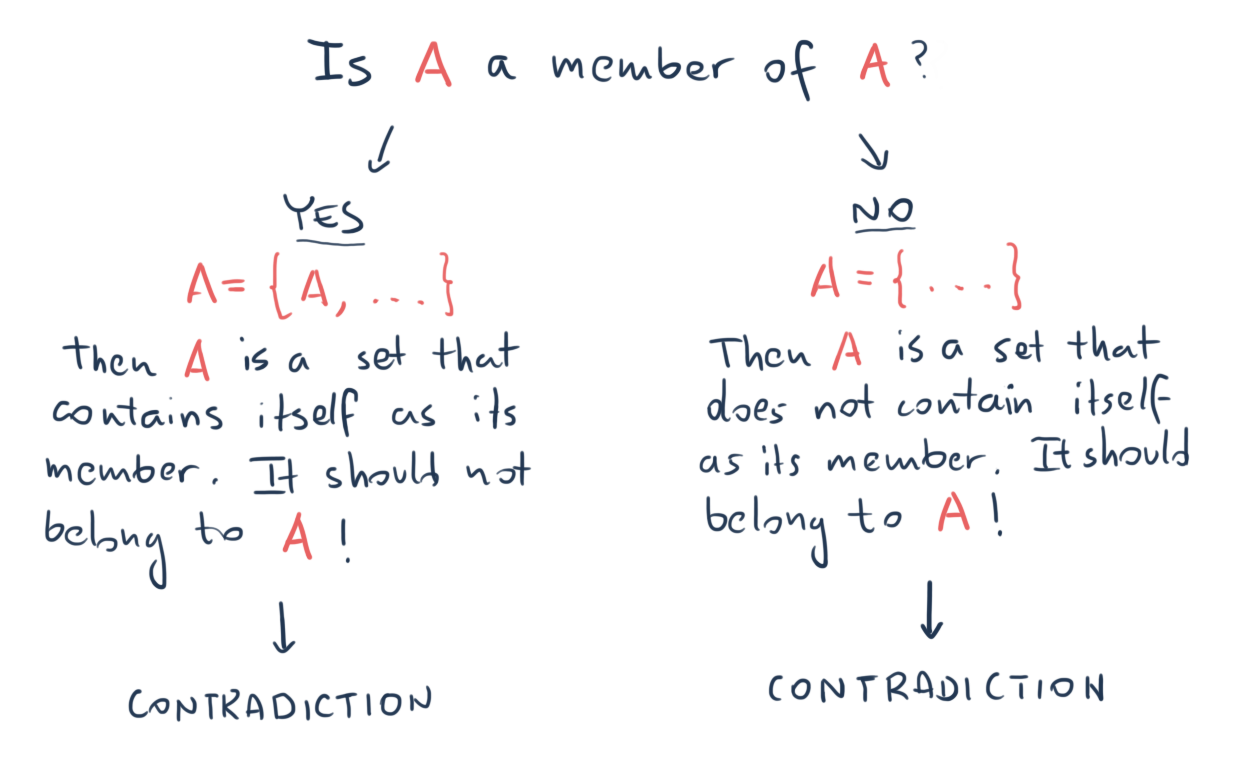 Is A a member of A?
YES
A = {A, ...}
Then A is a set that
contains itself as its
member. It should not
belong to A!
CONTRADICTION
NO
A = {...}
Then A is a set that
does not contain itself
as its member. It should
belong to A!
CONTRADICTION